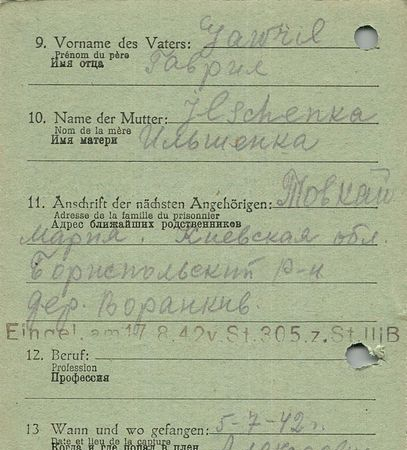 9. Vorname des Vaters: Gawril
Prénom du père
Имя отца Гаврил
10. Name der Mutter: Ilschenka
Nom de la mère
Имя матери Ильшенка
11. Anschrift der nächsten Angehörigen: Товкай
Adresse de la famille du prisonnier
Адрес ближайших родственников
Мария. Киевская обл.
Бориспольский р-н
дер. Воранкив.
Eingel. am 17.8.42 v. St. 305. z. St. III B
12. Beruf:
Profession
Профессия
13 Wann und wo gefangen: 5-7-42г.
Date et lieu de la capture
Когда и где попал в плен